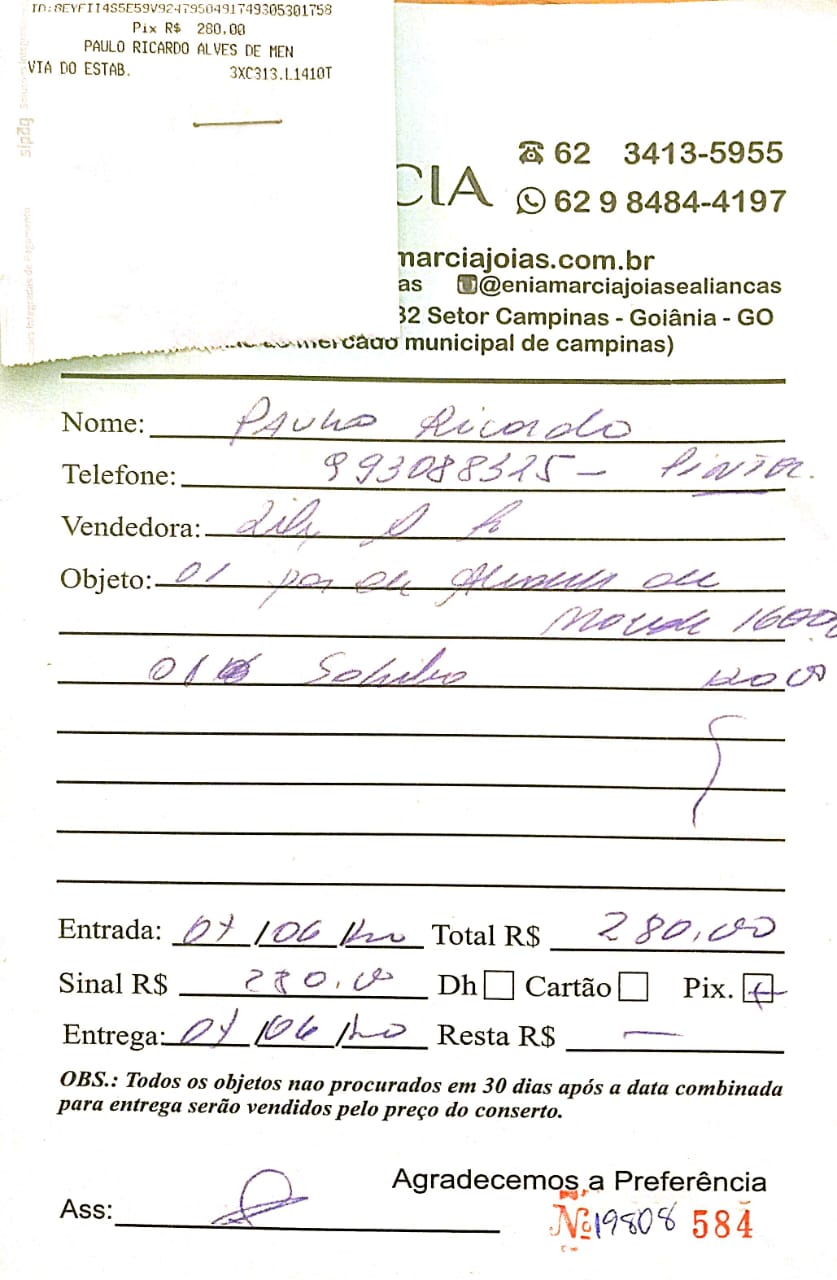 ID:8EYFIT4S5E59V9247950491749305301758
Pix R$ 280,00
PAULO RICARDO ALVES DE MEN
VIA DO ESTAB. 3XC313.L1410T
sipag
CIA
62 3413-5955
62 9 8484-4197
marciajoias.com.br
as @eniamarciajoiasealiancas
32 Setor Campinas - Goiânia - GO
mercado municipal de campinas)
Nome: Paulo Ricardo
Telefone: 993088325 - Pintor.
Vendedora:
Objeto: 01 par de de
Moeda
01
Entrada: 07/06 Total R$ 280,00
Sinal R$ 280,00 Dh Cartão Pix.
Entrega: 07/06 Resta R$ —
OBS.: Todos os objetos nao procurados em 30 dias após a data combinada
para entrega serão vendidos pelo preço do conserto.
Agradecemos a Preferência
Ass:
Nº 19808 584